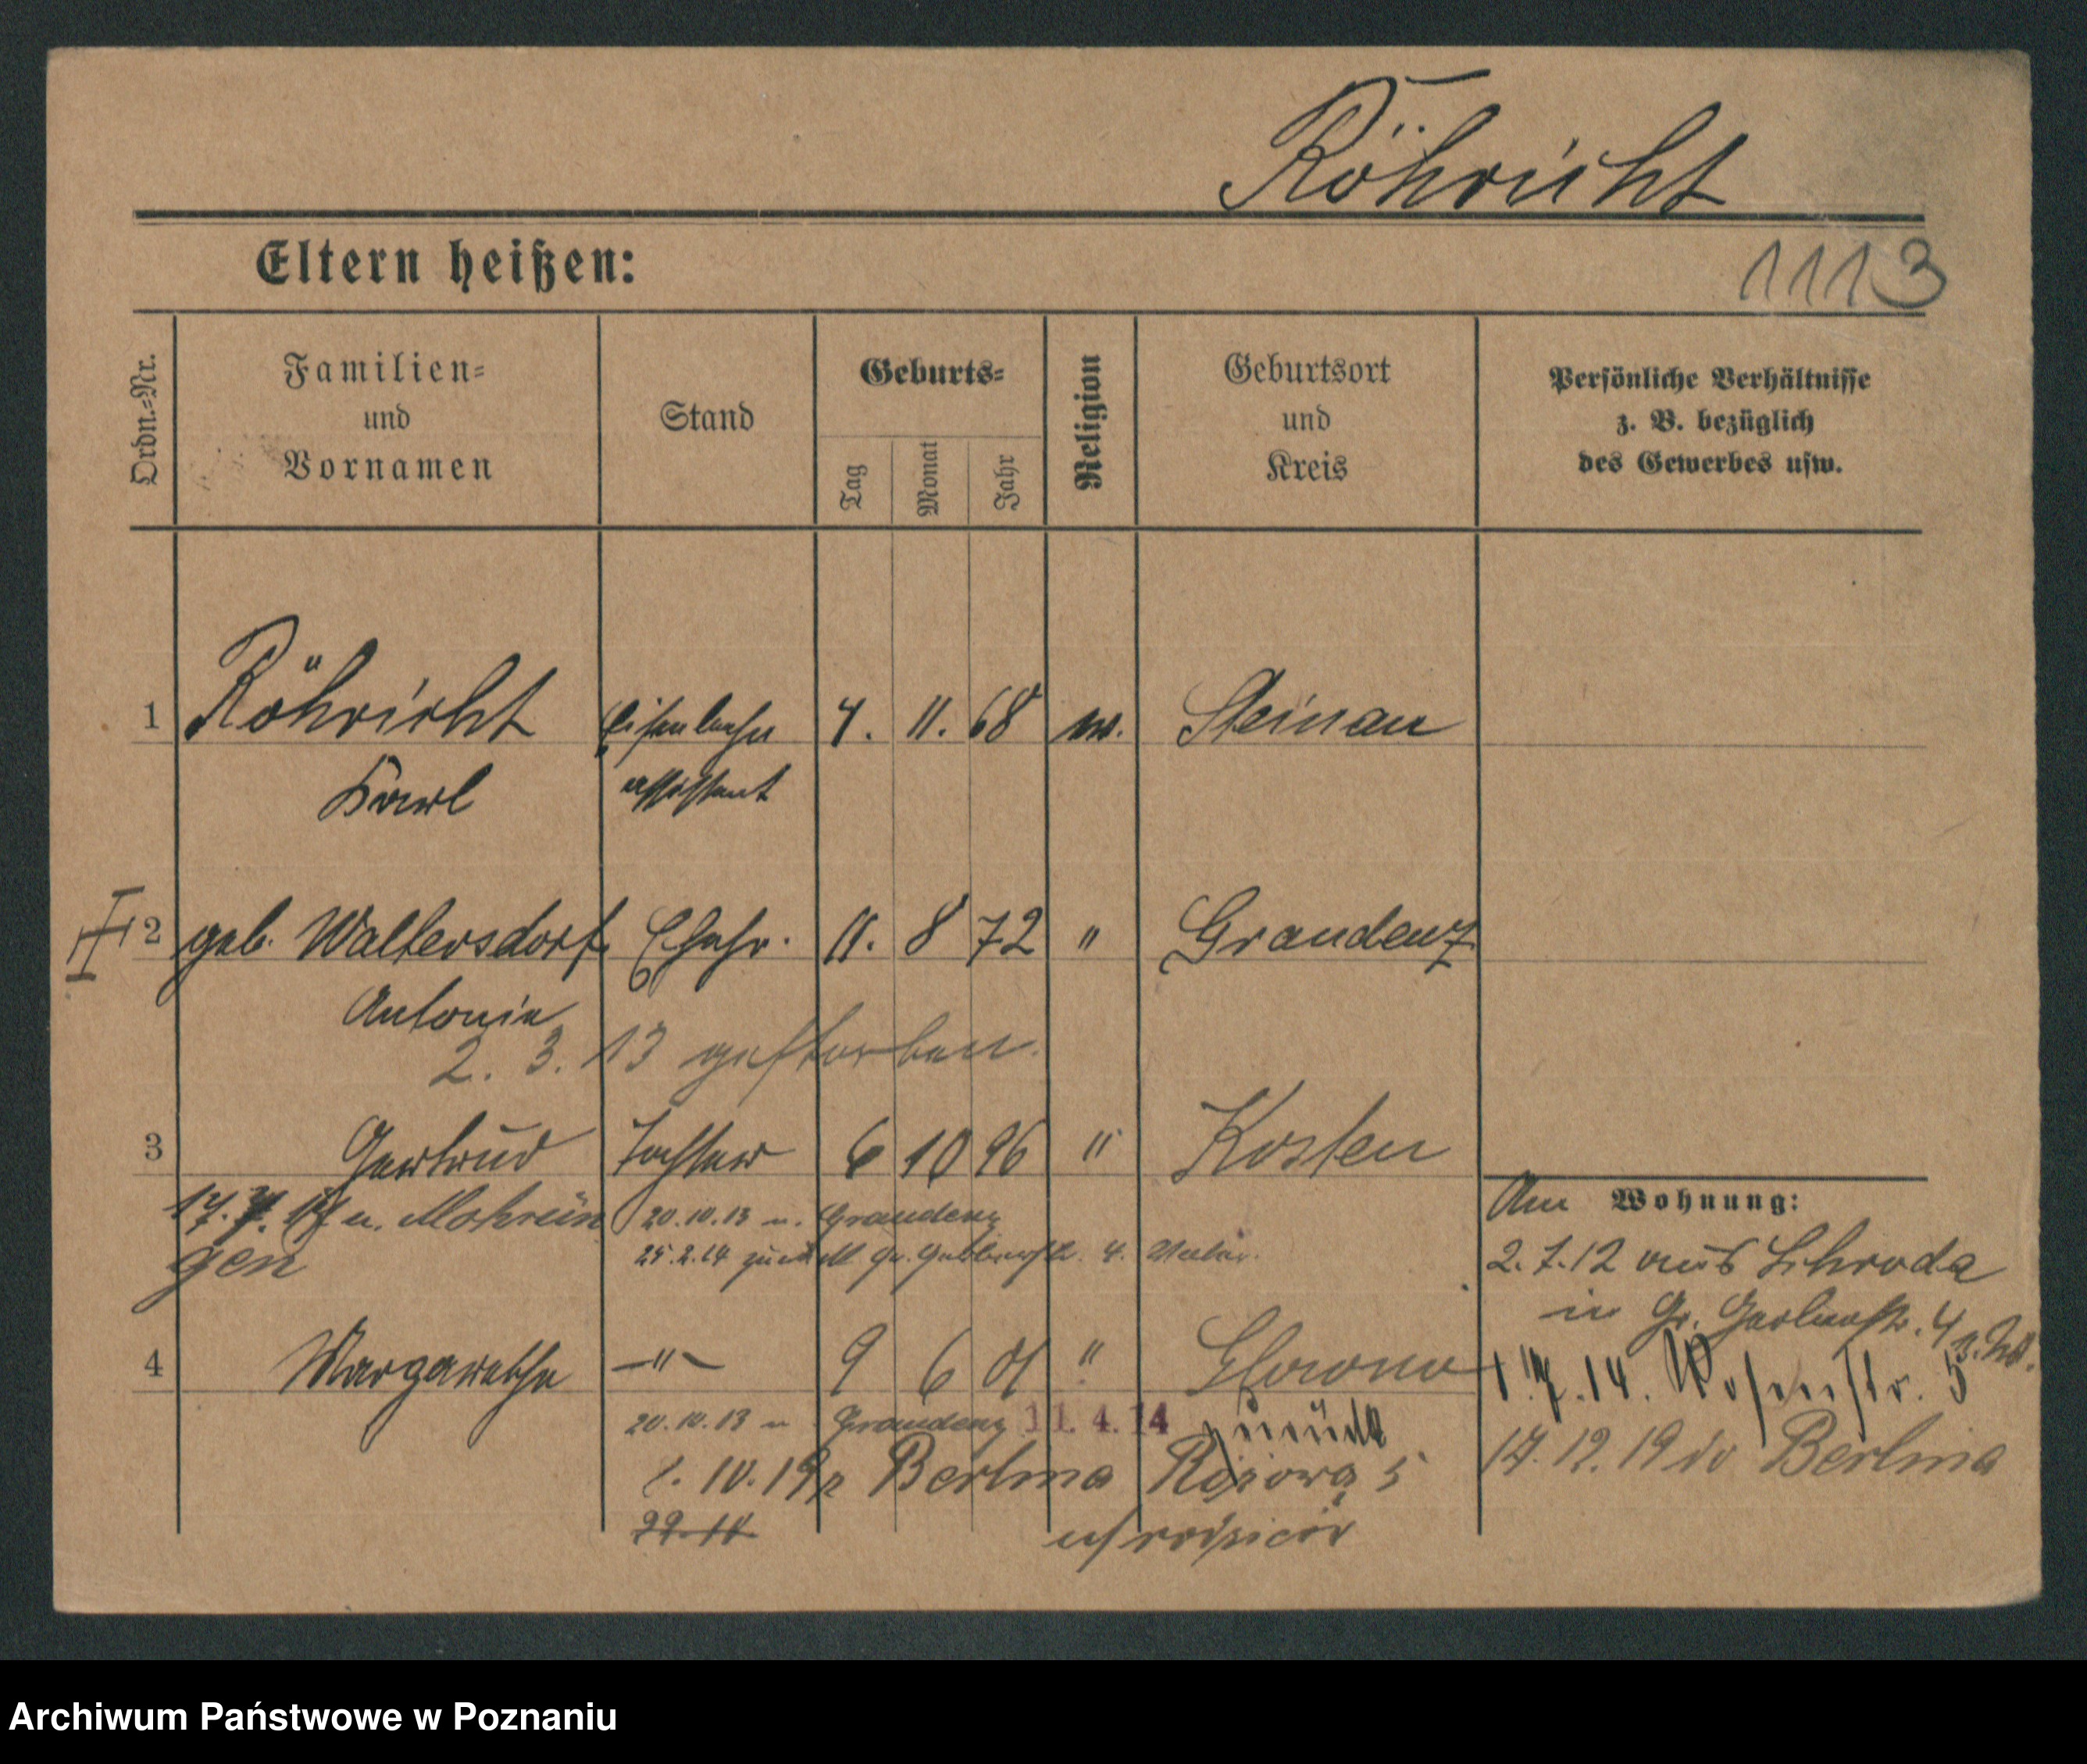 Röhricht
Eltern heißen:
1113
Ordn.-Nr.
Familien-
und
Vornamen
Stand
Geburts-
Tag
Monat
Jahr
Religion
Geburtsort
und
Kreis
Persönliche Verhältnisse
z. B. bezüglich
des Gewerbes usw.
1 Röhricht Eisenbahn 4. 11. 68 ev. Steinau
Karl assistent
2 geb. Waltersdorf Ehefr. 11. 8 72 " Graudenz
Antonie
2. 3. 13 gestorben.
3 Gertrud Tochter 6 10 96 " Kosten
17. 7. 14 n. Mohrun
gen
20.10.13 n. Graudenz
25.2.14 zurück Gr. Gerberstr. 4. Vater.
4 Margarethe —"— 9 6 01 " Glowno
20.10.13 n Graudenz 11. 4. 14 zurück
1. 10. 19 z Berlina Różowa 5
22. 10
u/rodziców
Am Wohnung:
2.7.12 aus Schroda
in Gr. Gerberstr. 4
1. 7. 14. Rosenstr. 5
17. 12. 19 do Berlina
Archiwum Państwowe w Poznaniu